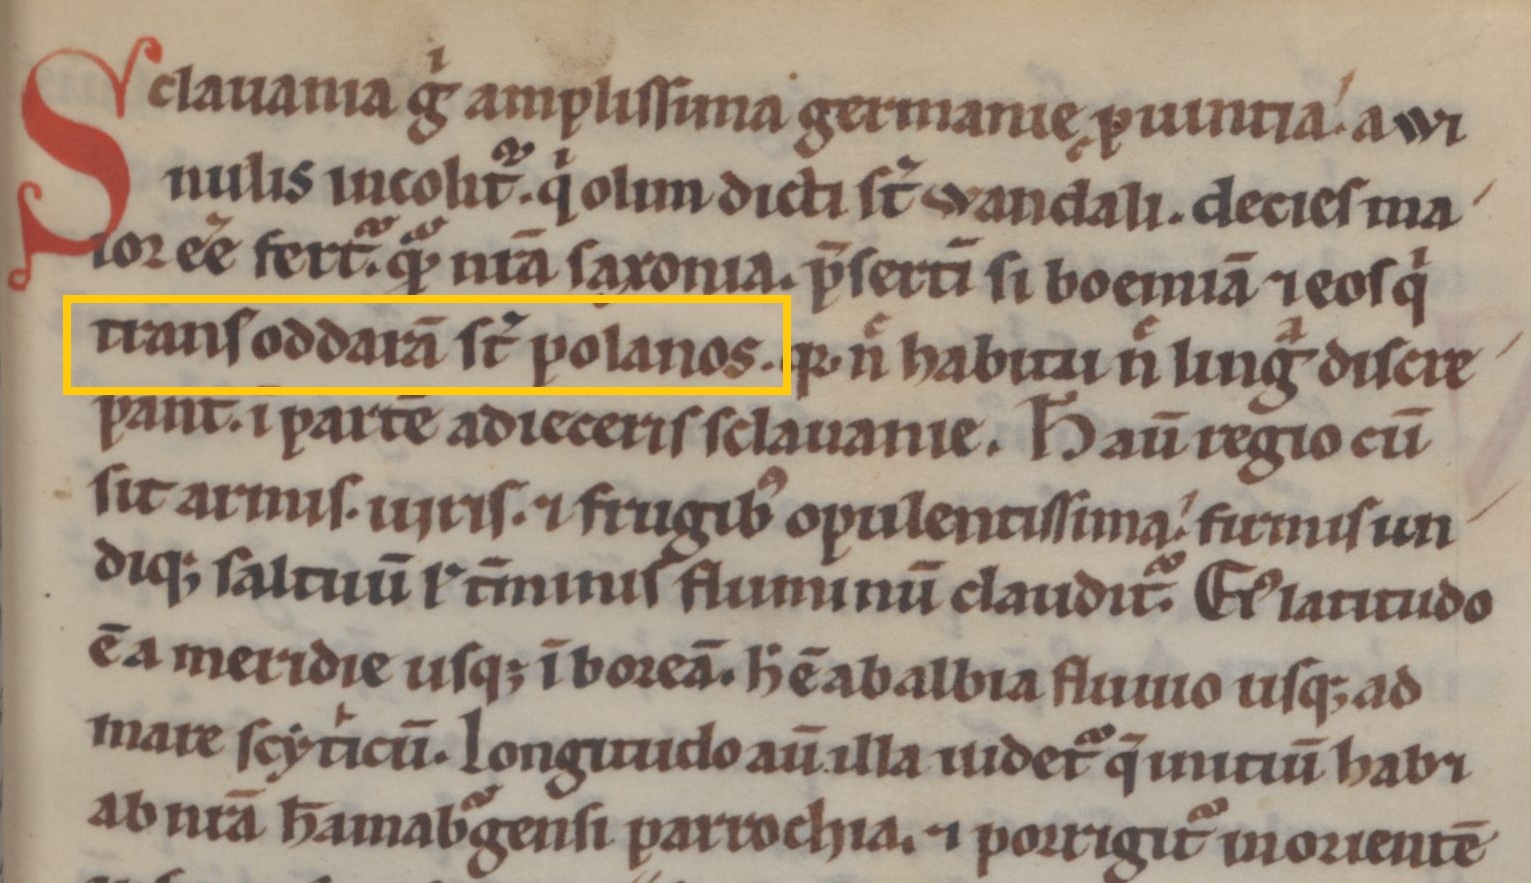 Sclauania gͥ amplissima germanię ꝓuintia. a wi
nulis incolit᷑. qͥ olim dicti st̄ wandali. decies ma
ior eē fert᷑. qᷓ nr̄a saxonia. p̄serti̅ si boemiā ⁊ eos qͥ
trans oddarā st̄ polanos. qꝛ nͤ habitu nͤ lingᷓ discre
pant. ī partē adieceris sclauanie. Hͨ aū regio cū
sit armis. uiris. ⁊ frugibꝰ opulentissima. firmis un
diqꝫ saltuū ꝉ t̄minis fluminū claudit᷑. Eiꝰ latitudo
ē a meridie usqꝫ ī boreā. h̄ ē ab albia fluuio usqꝫ ad
mare scyticū. Longitudo aū illa uidet᷑ q̄ initiū habꝫ
ab nr̄a hāmabᷣgensi parrochia. ⁊ porrigit᷑ in orientē